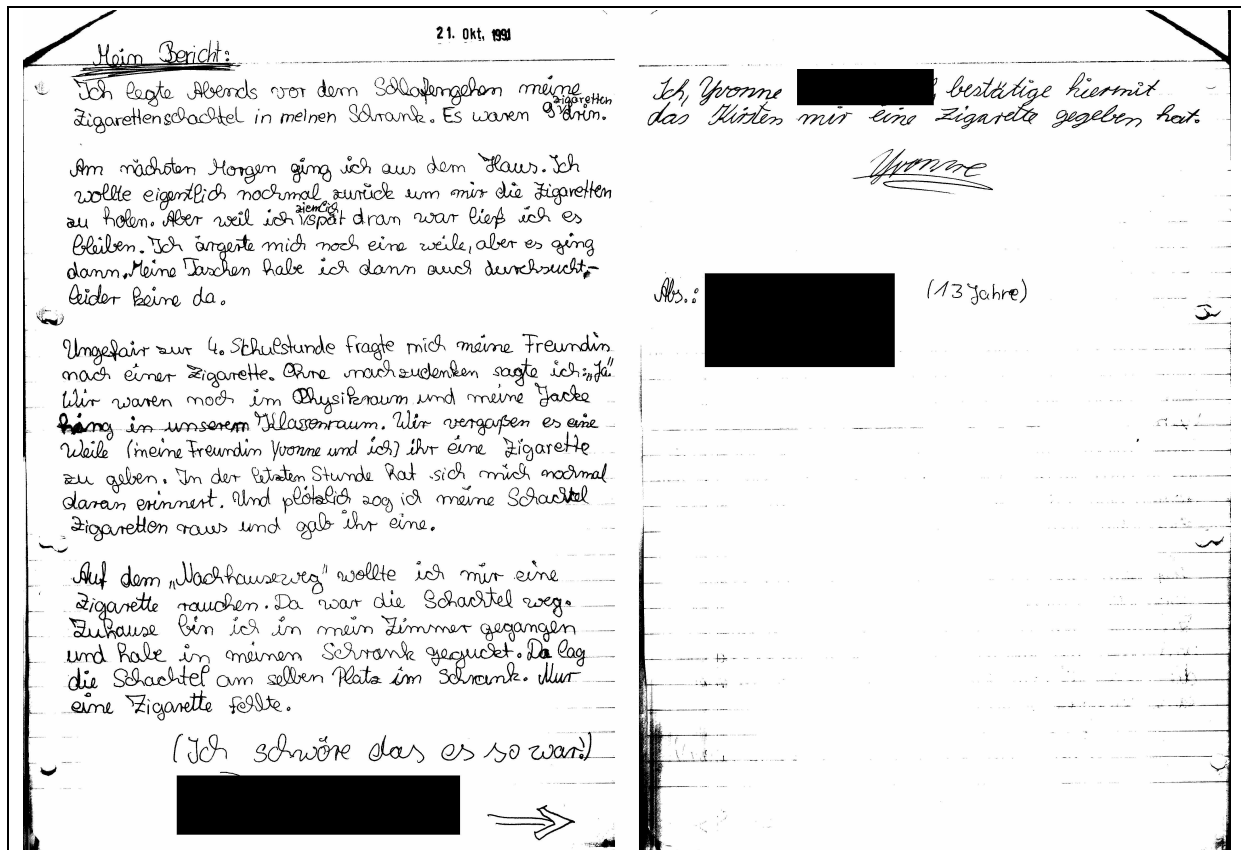 21. Okt. 1991
Mein Bericht:
Ich legte Abends vor dem Schlafengehen meine
Zigarettenschachtel in meinen Schrank. Es waren 9 Zigaretten drin.
Am nächsten Morgen ging ich aus dem Haus. Ich
wollte eigentlich nochmal zurück um mir die Zigaretten
zu holen. Aber weil ich ziemlich spät dran war ließ ich es
bleiben. Ich ärgerte mich noch eine weile, aber es ging
dann. Meine Taschen habe ich dann auch durchsucht,-
leider keine da.
Ungefair zur 4. Schulstunde fragte mich meine Freundin
nach einer Zigarette. Ohne nachzudenken sagte ich: „Ja"
Wir waren noch im Physikraum und meine Jacke
hing in unserem Klassenraum. Wir vergaßen es eine
Weile (meine Freundin Yvonne und ich) ihr eine Zigarette
zu geben. In der letzten Stunde hat sich mich nochmal
daran erinnert. Und plötzlich zog ich meine Schachtel
Zigaretten raus und gab ihr eine.
Auf dem „Nachhauseweg" wollte ich mir eine
Zigarette rauchen. Da war die Schachtel weg.
Zuhause bin ich in mein Zimmer gegangen
und habe in meinen Schrank geguckt. Da lag
die Schachtel am selben Platz im Schrank. Nur
eine Zigarette fehlte.
(Ich schwöre das es so war!)
Ich, Yvonne , bestätige hiermit
das Kirsten mir eine Zigarette gegeben hat.
Yvonne
Abs.: (13 Jahre)